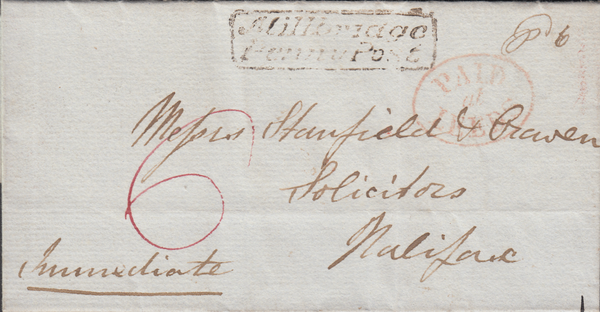 Millbridge
Penny Post
Pd 6
PAID
at
Messrs Stanfield & Craven
6
Solicitors
Halifax
Immediate